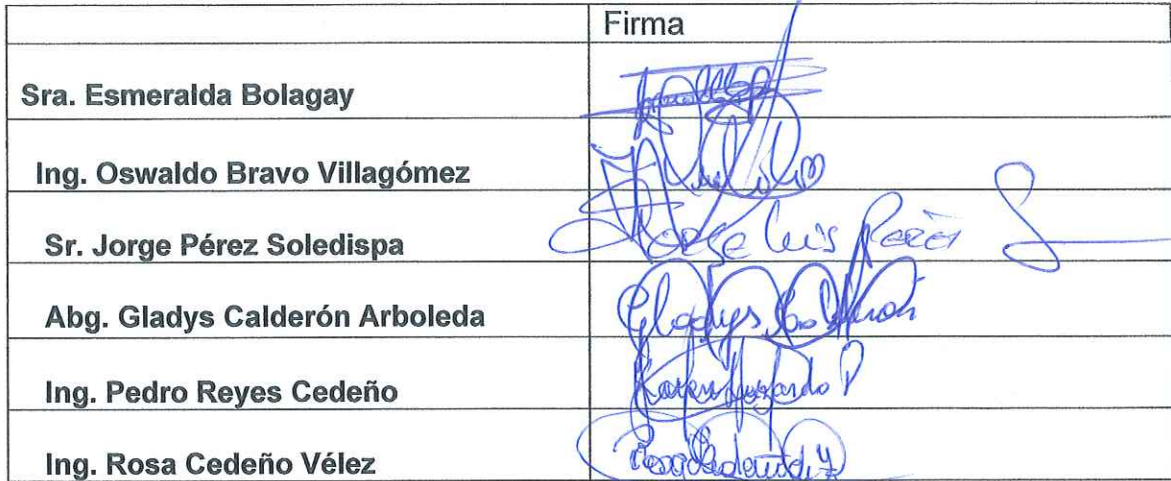 Firma
Sra. Esmeralda Bolagay
Ing. Oswaldo Bravo Villagómez
Sr. Jorge Pérez Soledispa Jorge Luis Pérez S
Abg. Gladys Calderón Arboleda Gladys Calderón
Ing. Pedro Reyes Cedeño Karen
Ing. Rosa Cedeño Vélez Rosa Cedeño